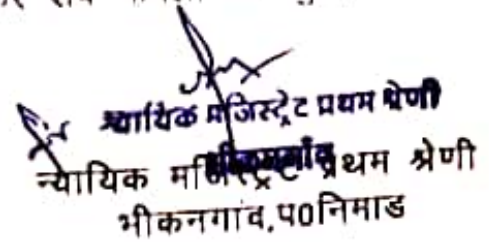 न्यायिक मजिस्ट्रेट प्रथम श्रेणी
भीकनगांव
न्यायिक मजिस्ट्रेट प्रथम श्रेणी
भीकनगांव,प0निमाड